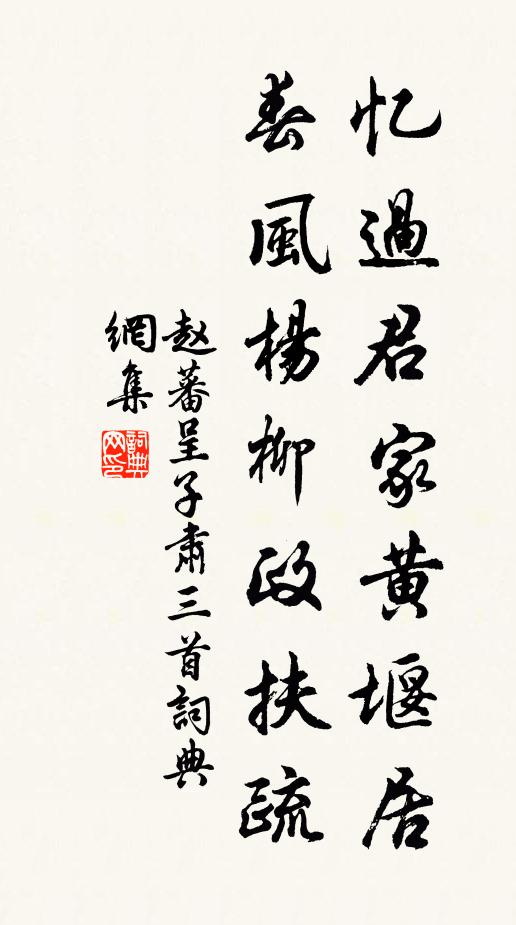 忆過君家黄堰居
春風楊柳政扶疏
赵蕃呈子肅三首詞典
網集
詞典
网印